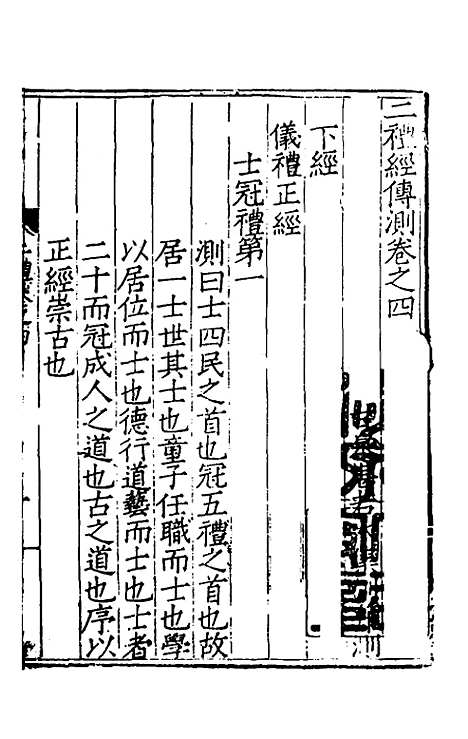 二禮經傳測卷之四
測
下經
儀禮正經
士冠禮第一
測曰士四民之首也冠五禮之首也故
居一士世其士也童子任職而士也學
以居位而士也德行道藝而士也士者
二十而冠成人之道也古之道也序以
正經崇古也